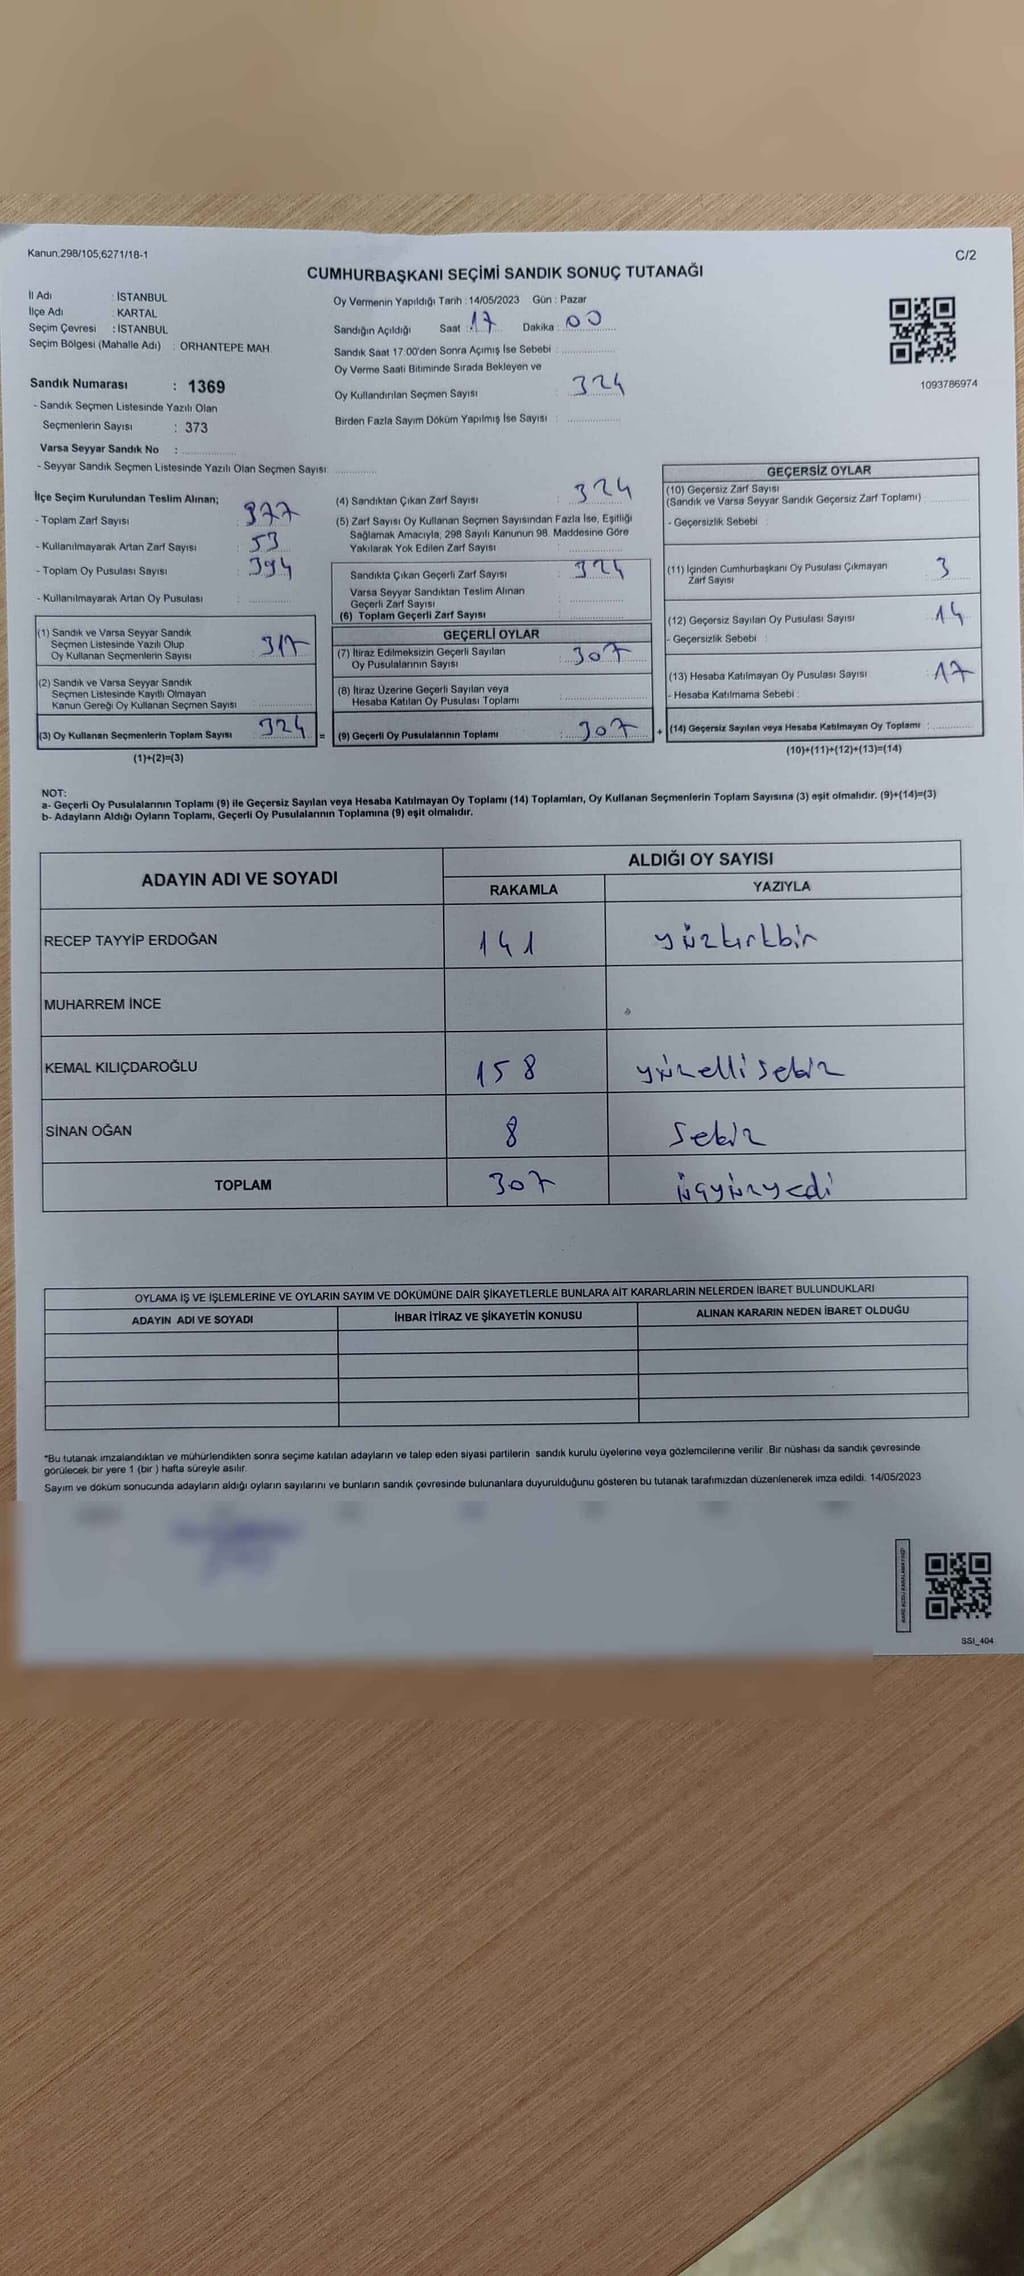 Kanun,298/105,6271/18-1
C/2
CUMHURBAŞKANI SEÇİMİ SANDIK SONUÇ TUTANAĞI
İl Adı : İSTANBUL
İlçe Adı : KARTAL
Seçim Çevresi : İSTANBUL
Seçim Bölgesi (Mahalle Adı) : ORHANTEPE MAH.
Sandık Numarası : 1369
- Sandık Seçmen Listesinde Yazılı Olan
Seçmenlerin Sayısı : 373
Varsa Seyyar Sandık No :
- Seyyar Sandık Seçmen Listesinde Yazılı Olan Seçmen Sayısı
Oy Vermenin Yapıldığı Tarih : 14/05/2023 Gün : Pazar
Sandığın Açıldığı Saat : 17 Dakika : 00
Sandık Saat 17:00'den Sonra Açımış İse Sebebi :
Oy Verme Saati Bitiminde Sırada Bekleyen ve
Oy Kullandırılan Seçmen Sayısı : 324
Birden Fazla Sayım Döküm Yapılmış İse Sayısı :
1093786974
İlçe Seçim Kurulundan Teslim Alınan;
- Toplam Zarf Sayısı : 377
- Kullanılmayarak Artan Zarf Sayısı : 53
- Toplam Oy Pusulası Sayısı : 394
- Kullanılmayarak Artan Oy Pusulası :
(1) Sandık ve Varsa Seyyar Sandık
Seçmen Listesinde Yazılı Olup
Oy Kullanan Seçmenlerin Sayısı 317
(2) Sandık ve Varsa Seyyar Sandık
Seçmen Listesinde Kayıtlı Olmayan
Kanun Gereği Oy Kullanan Seçmen Sayısı
(3) Oy Kullanan Seçmenlerin Toplam Sayısı : 324 =
(1)+(2)=(3)
(4) Sandıktan Çıkan Zarf Sayısı : 324
(5) Zarf Sayısı Oy Kullanan Seçmen Sayısından Fazla İse, Eşitliği
Sağlamak Amacıyla, 298 Sayılı Kanunun 98. Maddesine Göre
Yakılarak Yok Edilen Zarf Sayısı
Sandıkta Çıkan Geçerli Zarf Sayısı : 324
Varsa Seyyar Sandıktan Teslim Alınan
Geçerli Zarf Sayısı
(6) Toplam Geçerli Zarf Sayısı
GEÇERLİ OYLAR
(7) İtiraz Edilmeksizin Geçerli Sayılan
Oy Pusulalarının Sayısı : 307
(8) İtiraz Üzerine Geçerli Sayılan veya
Hesaba Katılan Oy Pusulası Toplamı
(9) Geçerli Oy Pusulalarının Toplamı : 307 +
GEÇERSİZ OYLAR
(10) Geçersiz Zarf Sayısı
(Sandık ve Varsa Seyyar Sandık Geçersiz Zarf Toplamı) :
- Geçersizlik Sebebi :
(11) İçinden Cumhurbaşkanı Oy Pusulası Çıkmayan
Zarf Sayısı 3
(12) Geçersiz Sayılan Oy Pusulası Sayısı : 14
- Geçersizlik Sebebi :
(13) Hesaba Katılmayan Oy Pusulası Sayısı : 17
- Hesaba Katılmama Sebebi :
(14) Geçersiz Sayılan veya Hesaba Katılmayan Oy Toplamı :
(10)+(11)+(12)+(13)=(14)
NOT:
a- Geçerli Oy Pusulalarının Toplamı (9) ile Geçersiz Sayılan veya Hesaba Katılmayan Oy Toplamı (14) Toplamları, Oy Kullanan Seçmenlerin Toplam Sayısına (3) eşit olmalıdır. (9)+(14)=(3)
b- Adayların Aldığı Oyların Toplamı, Geçerli Oy Pusulalarının Toplamına (9) eşit olmalıdır.
ADAYIN ADI VE SOYADI ALDIĞI OY SAYISI
RAKAMLA YAZIYLA
RECEP TAYYİP ERDOĞAN 141 yüzkırkbir
MUHARREM İNCE
KEMAL KILIÇDAROĞLU 158 yüzellisekiz
SİNAN OĞAN 8 sekiz
TOPLAM 307 üçyüzyedi
OYLAMA İŞ VE İŞLEMLERİNE VE OYLARIN SAYIM VE DÖKÜMÜNE DAİR ŞİKAYETLERLE BUNLARA AİT KARARLARIN NELERDEN İBARET BULUNDUKLARI
ADAYIN ADI VE SOYADI İHBAR İTİRAZ VE ŞİKAYETİN KONUSU ALINAN KARARIN NEDEN İBARET OLDUĞU
*Bu tutanak imzalandıktan ve mühürlendikten sonra seçime katılan adayların ve talep eden siyasi partilerin sandık kurulu üyelerine veya gözlemcilerine verilir. Bir nüshası da sandık çevresinde
görülecek bir yere 1 (bir ) hafta süreyle asılır.
Sayım ve döküm sonucunda adayların aldığı oyların sayılarını ve bunların sandık çevresinde bulunanlara duyurulduğunu gösteren bu tutanak tarafımızdan düzenlenerek imza edildi. 14/05/2023
SSI_404